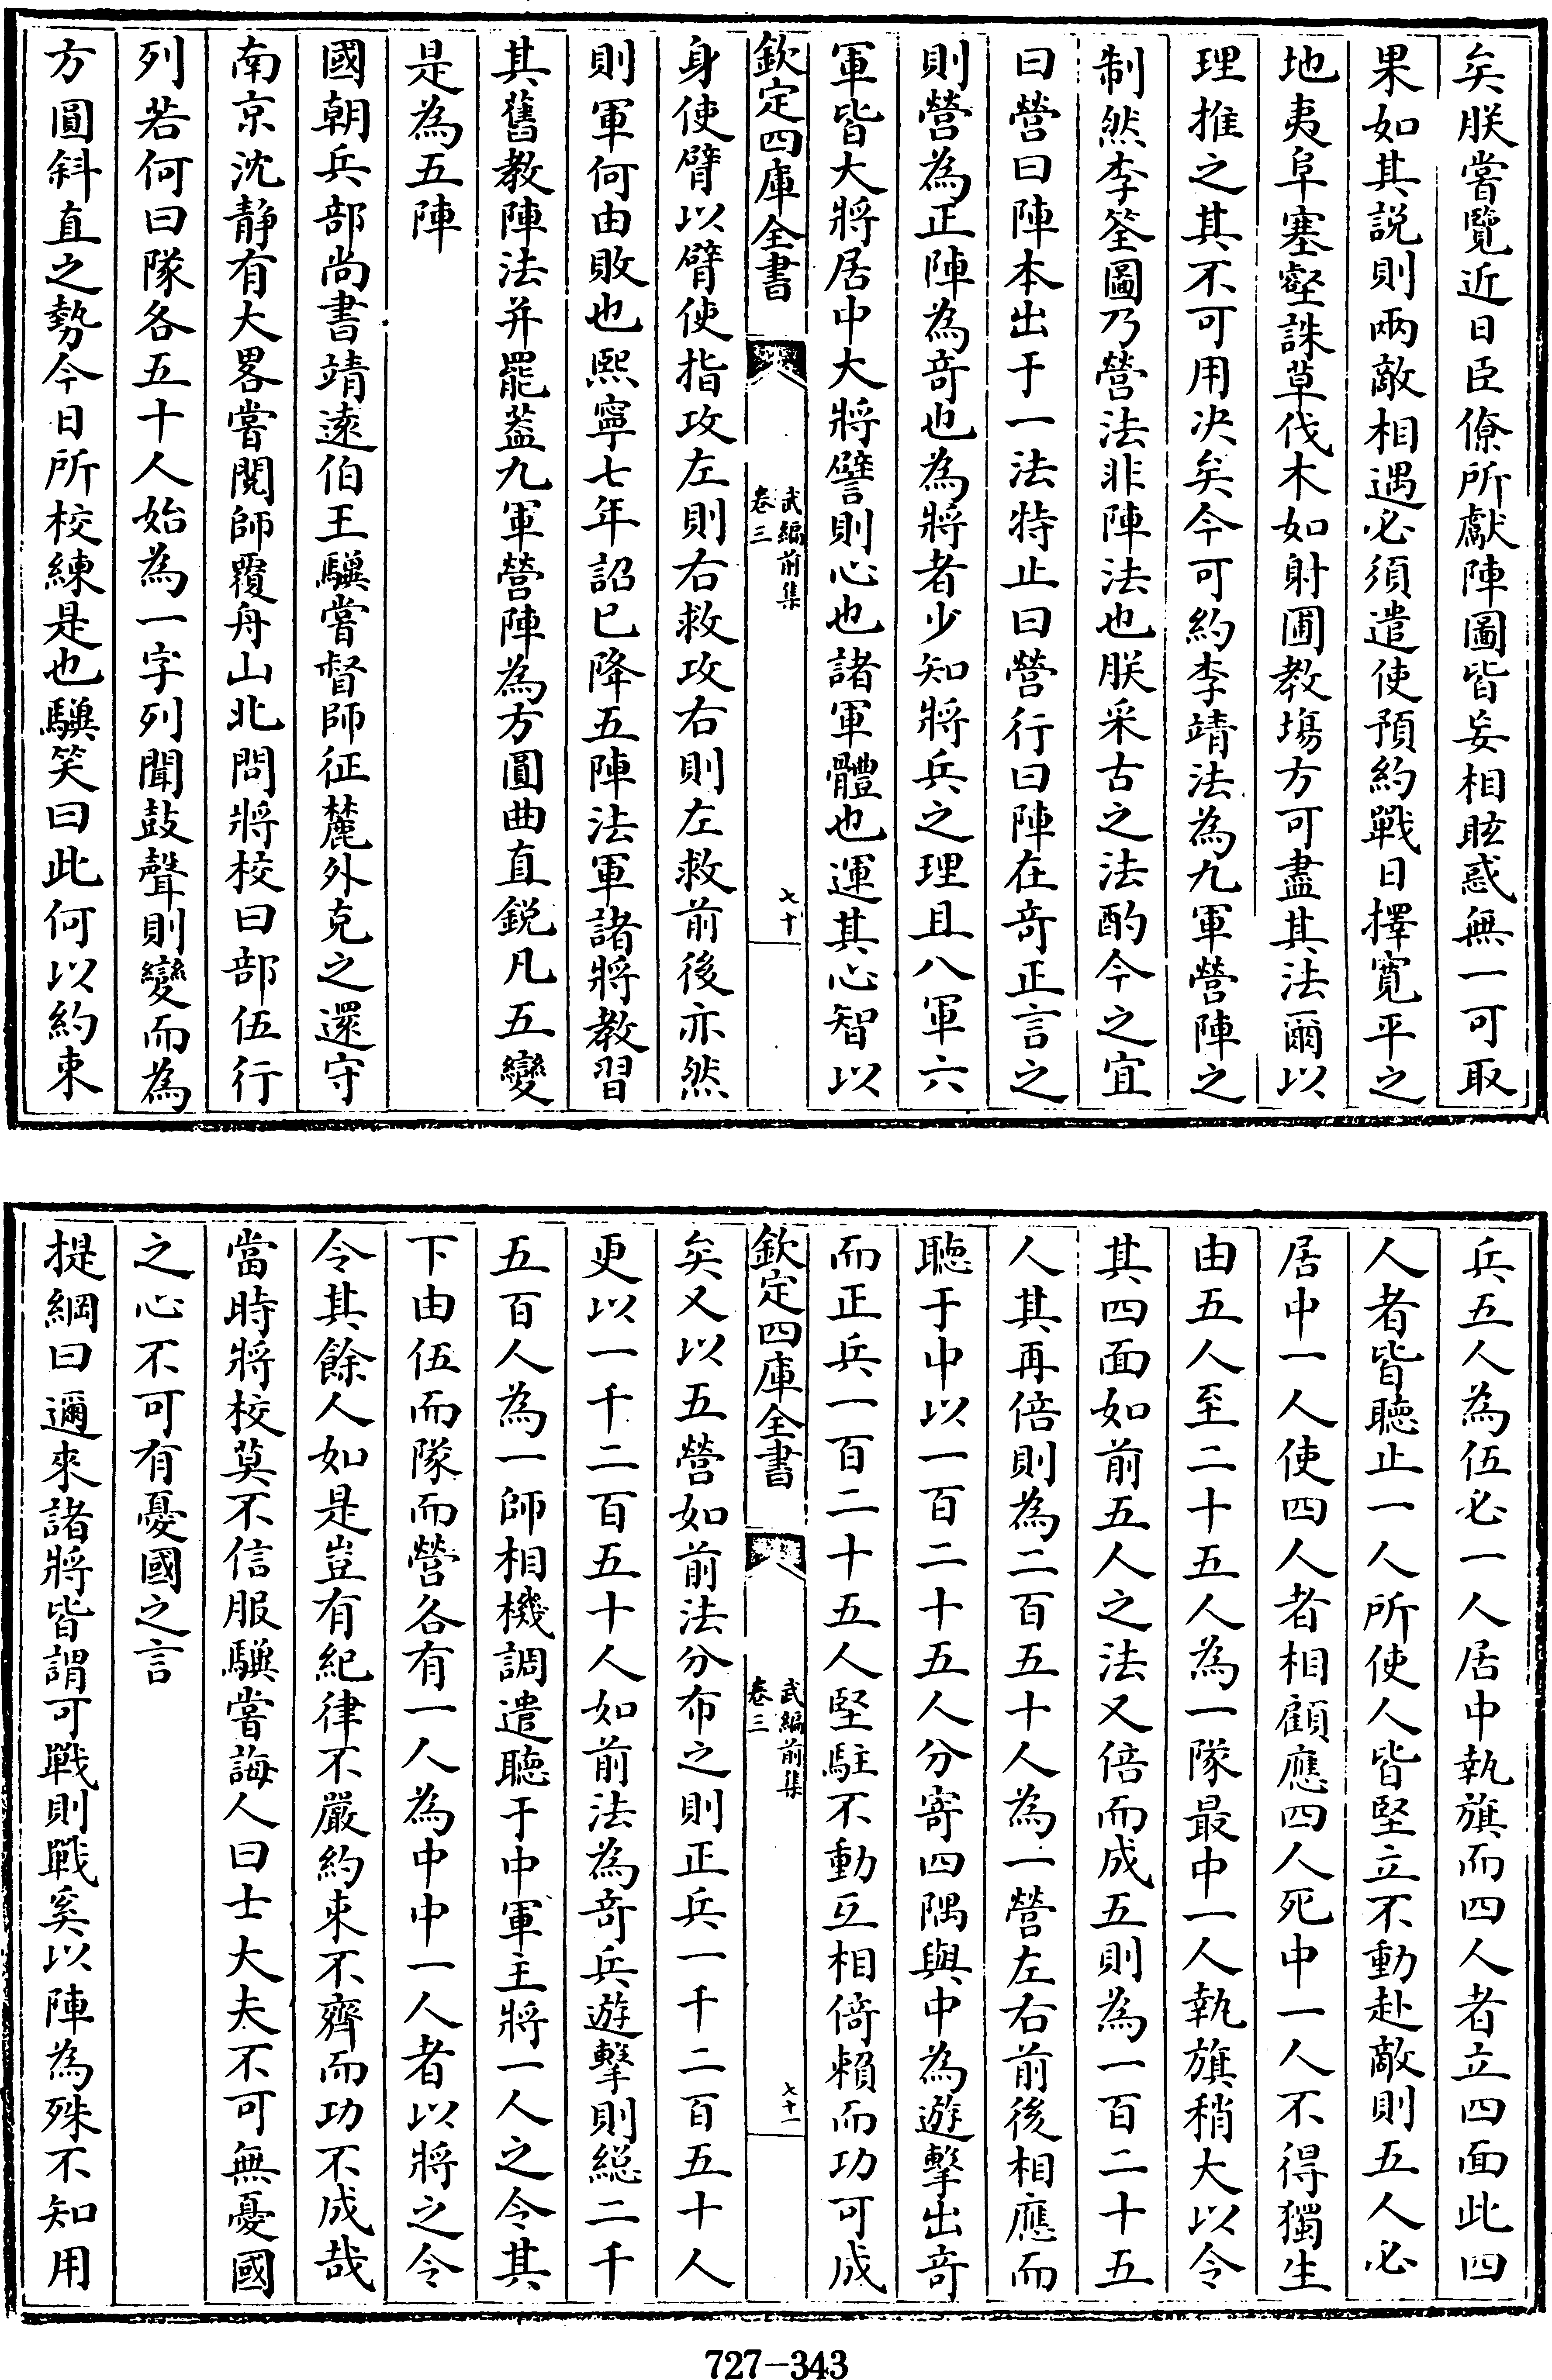 矣朕嘗覽近日臣僚所獻陣圖皆妄相眩惑無一可取
果如其説則兩敵相遇必須遣使預約戰日擇寛平之
地夷阜塞壑誅草伐木如射圃教塲方可盡其法爾以
理推之其不可用决矣今可約李靖法為九軍營陣之
制然李筌圖乃營法非陣法也朕采古之法酌今之宜
曰營曰陣本出于一法特止曰營行曰陣在竒正言之
則營為正陣為竒也為將者少知將兵之理且八軍六
軍皆大將居中大將譬則心也諸軍體也運其心智以
欽定四庫全書
武編前集
卷三
七十
身使臂以臂使指攻左則右救攻右則左救前後亦然
則軍何由敗也熙寧七年詔已降五陣法軍諸將教習
其舊教陣法并罷葢九軍營陣為方圓曲直鋭凡五變
是為五陣
國朝兵部尚書靖遠伯王驥嘗督師征麓外克之還守
南京沈静有大畧嘗閲師覆舟山北問將校曰部伍行
列若何曰隊各五十人始為一字列聞鼓聲則變而為
方圓斜直之勢今日所校練是也驥笑曰此何以約束
兵五人為伍必一人居中執旗而四人者立四面此四
人者皆聽止一人所使人皆堅立不動赴敵則五人必
居中一人使四人者相顧應四人死中一人不得獨生
由五人至二十五人為一隊最中一人執旗稍大以令
其四面如前五人之法又倍而成五則為一百二十五
人其再倍則為二百五十人為一營左右前後相應而
聽于中以一百二十五人分寄四隅與中為遊擊出竒
而正兵一百二十五人堅駐不動互相倚賴而功可成
欽定四庫全書
武編前集
卷三
七十一
矣又以五營如前法分布之則正兵一千二百五十人
更以一千二百五十人如前法為竒兵遊擊則総二千
五百人為一師相機調遣聽于中軍主將一人之令其
下由伍而隊而營各有一人為中中一人者以將之令
令其餘人如是豈有紀律不嚴約束不齊而功不成哉
當時將校莫不信服驥嘗誨人曰士大夫不可無憂國
之心不可有憂國之言
提綱曰邇來諸將皆謂可戰則戰奚以陣為殊不知用
727-343